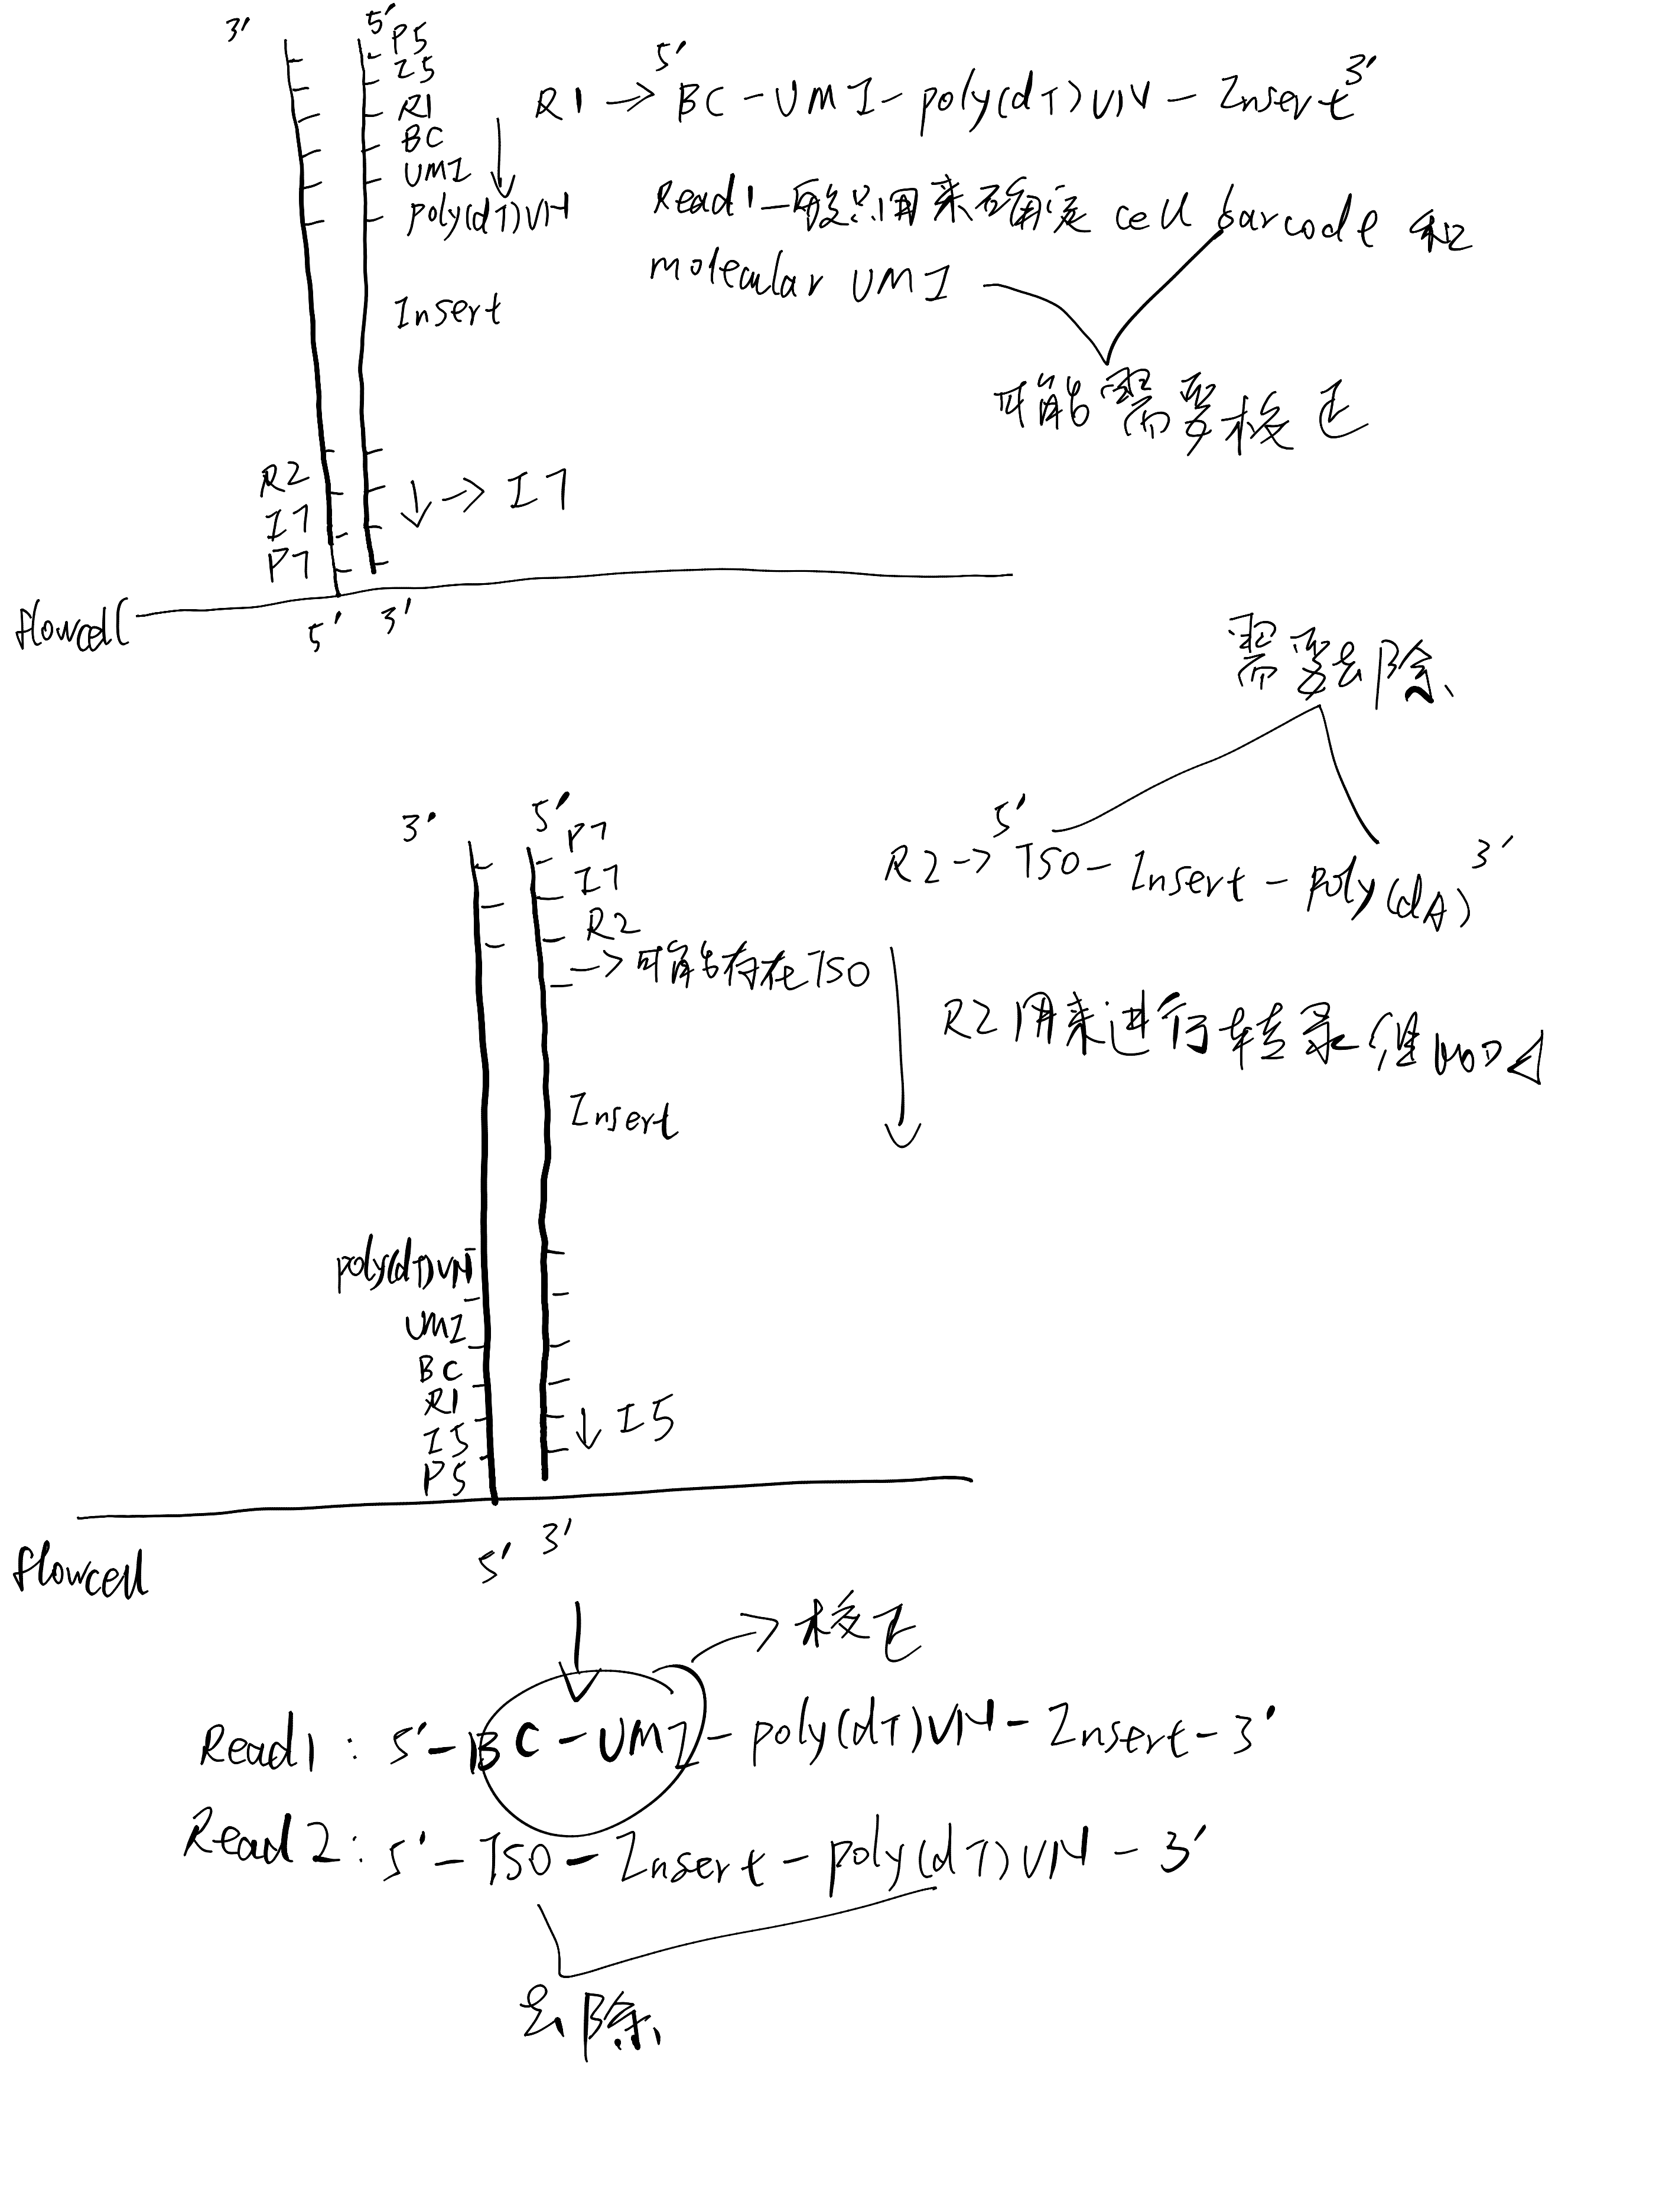 3'
5'
P5
I5
R1
BC
UMI
poly(dT)VN
Insert
R2
I7
P7
→ I7
flowcell
5' 3'
5' 3'
R1 → BC-UMI-poly(dT)VN-Insert
Read1一般只用来确定 cell barcode 和
molecular UMI
可能需要校正
需要去除
3'
5'
P7
I7
R2
→ 可能存在TSO
Insert
poly(dT)VN
UMI
BC
R1
I5
P5
I5
flowcell
5' 3'
5' 3'
R2 → TSO-Insert-poly(dA)
R2用来进行转录组
→ 校正
Read1: 5'-BC-UMI-poly(dT)VN-Insert-3'
Read2: 5'-TSO-Insert-poly(dT)VN-3'
去除